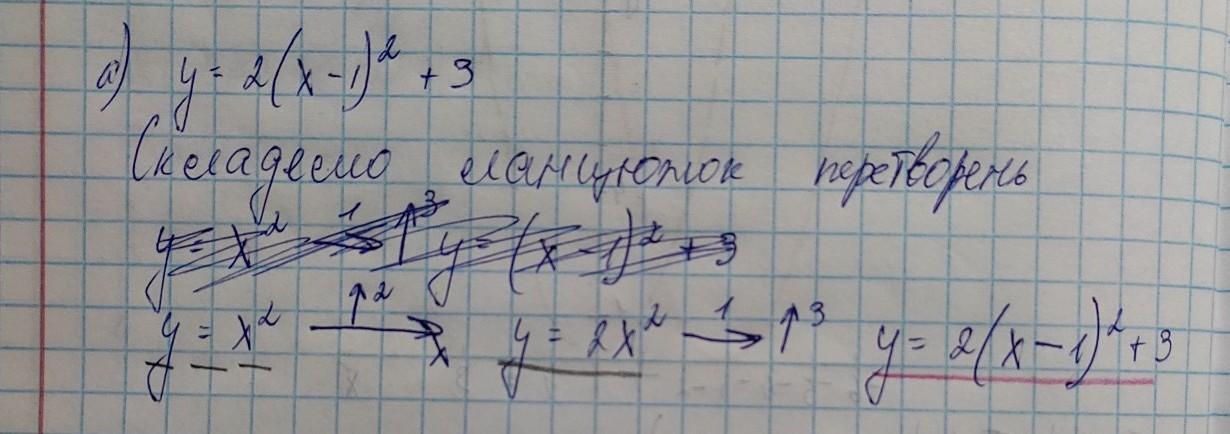 а) y = 2(x-1)² + 3
Складемо ланцюжок перетворень
y = x² →1 ↑3 y = (x-1)² + 3
y = x² →↑2 x y = 2x² →1 ↑3 y = 2(x-1)² + 3